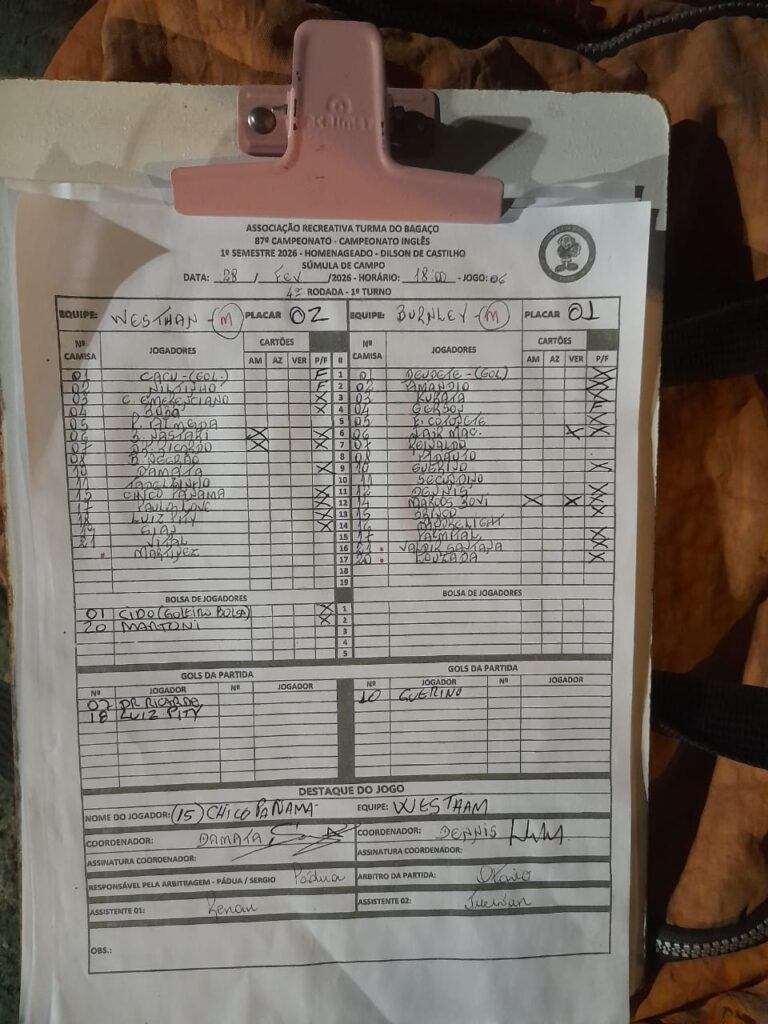 acrimet
ASSOCIAÇÃO RECREATIVA TURMA DO BAGAÇO
87º CAMPEONATO - CAMPEONATO INGLÊS
1º SEMESTRE 2026 - HOMENAGEADO - DILSON DE CASTILHO
SÚMULA DE CAMPO
DATA: 28 / Fev /2026 - HORÁRIO: 18:00 - JOGO: 06
4ª RODADA - 1º TURNO
EQUIPE: WESTHAN - (M) PLACAR 02 EQUIPE: BURNLEY - (M) PLACAR 01
Nº CAMISA JOGADORES CARTÕES AM AZ VER P/F # Nº CAMISA JOGADORES CARTÕES AM AZ VER P/F
01 CACU - (GOL.) F 1 01 DEUDETE - (GOL) X
02 NILTINHO F 2 02 AMANDIO X
03 C. EMERENCIANO X 3 03 KUBATA X
04 X 4 04 GERSON F
05 P. ALMEIDA 5 05 X
06 S. NASTARI X X 6 06 X X
07 DR. RICARDO X X 7 07 REINALDO
08 B. NEGRÃO X 8 08
10 DAMATA X 9 10 GUERINO X
11 10 11 SECUNDINO
15 CHICO PANAMA X 11 12 DENNIS X
17 X 12 14 MARCOS BOVI X X X
18 LUIZ PITY X 13 15 X
19 X 14 16
21 VITAL 15 17 PALMITAL X
MARTINEZ 16 21 VALDIR SANTANA X
17 20 LOUZADA X
18
19
BOLSA DE JOGADORES BOLSA DE JOGADORES
01 CIDO (GOLEIRO BOLSA) X 1
20 MARTONI X 2
3
4
5
GOLS DA PARTIDA GOLS DA PARTIDA
Nº JOGADOR Nº JOGADOR Nº JOGADOR Nº JOGADOR
07 DR RICARDO 10 GUERINO
18 LUIZ PITY
DESTAQUE DO JOGO
NOME DO JOGADOR: (15) CHICO PANAMA EQUIPE: WESTHAM
COORDENADOR: DAMATA COORDENADOR: DENNIS
ASSINATURA COORDENADOR: ASSINATURA COORDENADOR:
RESPONSÁVEL PELA ARBITRAGEM - PÁDUA / SERGIO Pádua ARBITRO DA PARTIDA: Otavio
ASSISTENTE 01: Renan ASSISTENTE 02:
OBS.: